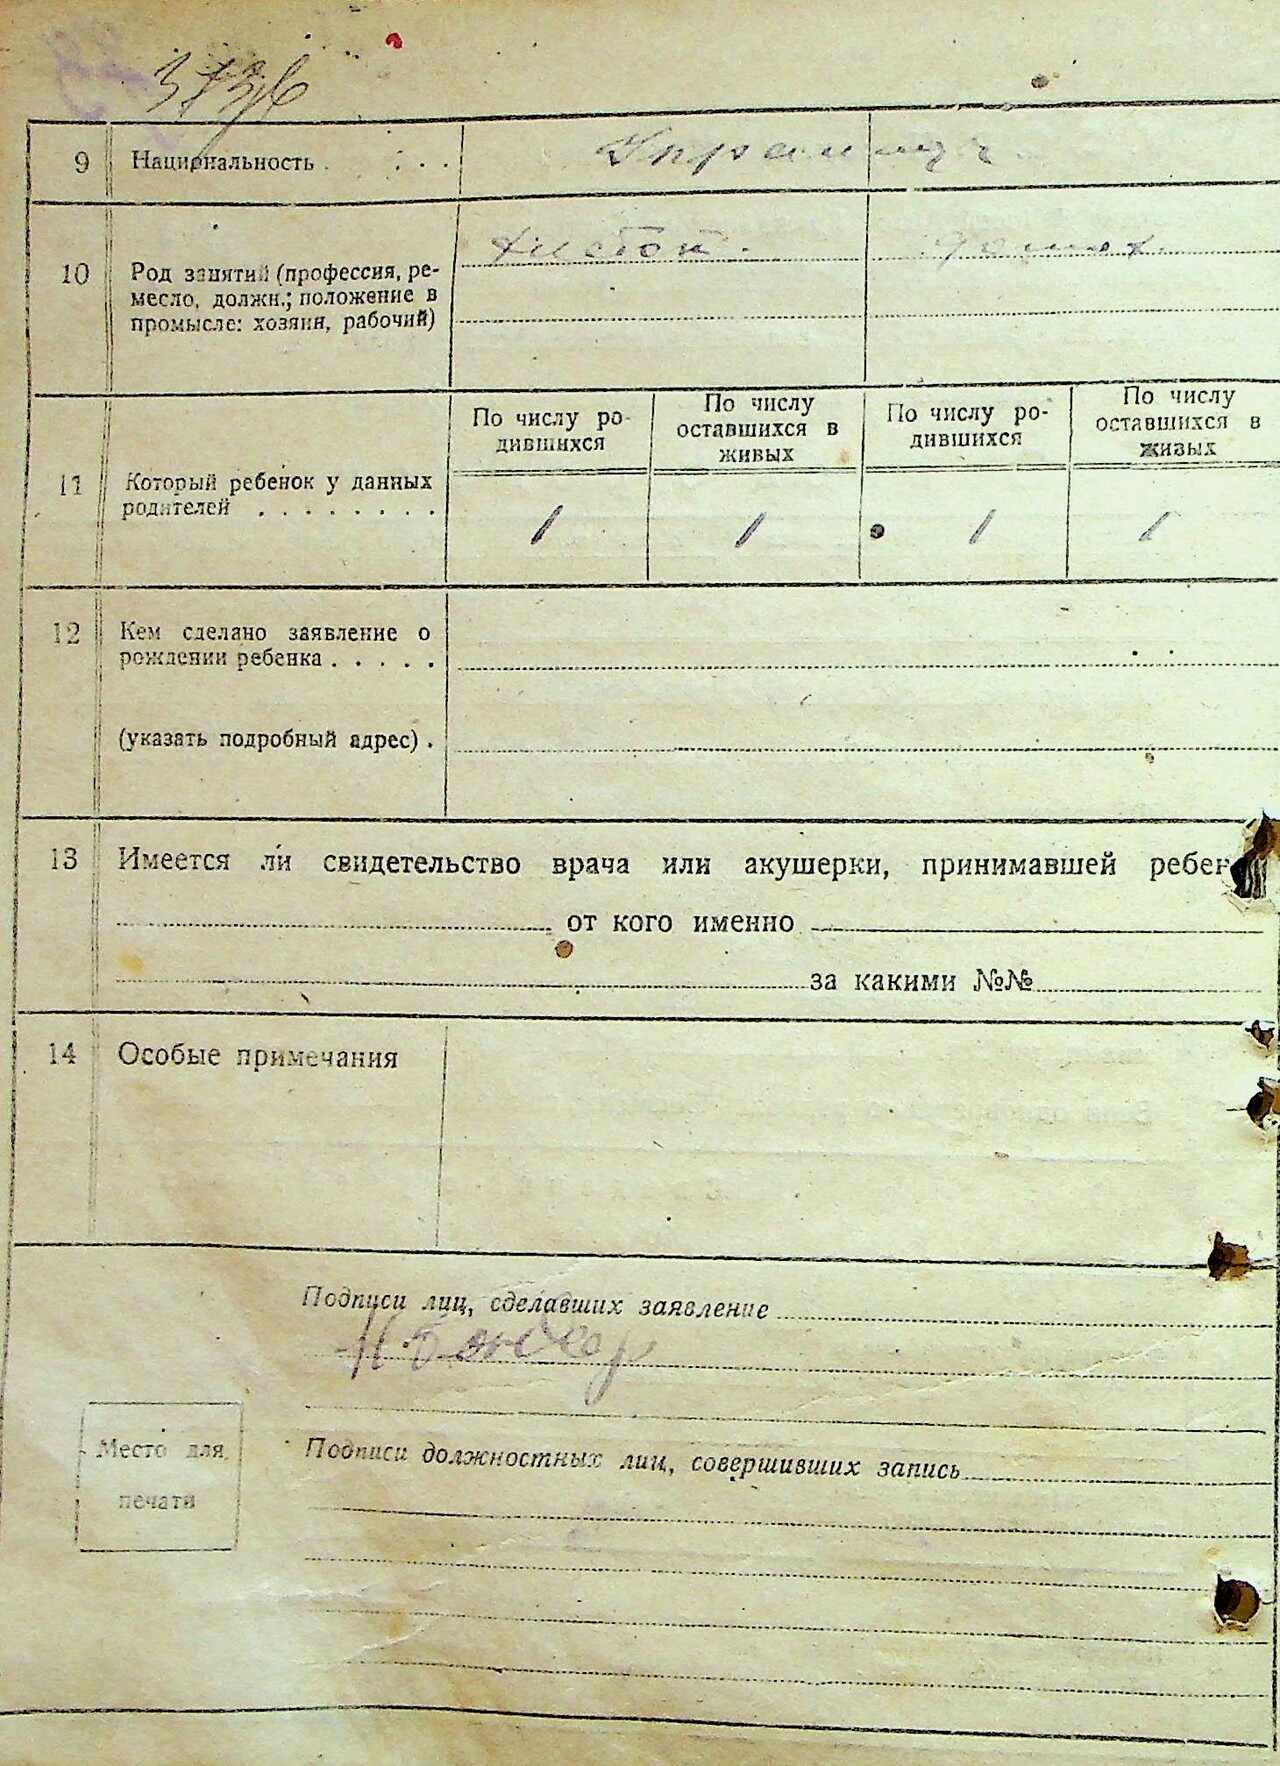 9 Национальность . : . .
Украинцы
10 Род занятий (профессия, ре-
месло, должн.; положение в
промысле: хозяин, рабочий)
По числу ро-
дившихся
По числу
оставшихся в
живых
По числу ро-
дившихся
По числу
оставшихся в
живых
11 Который ребенок у данных
родителей . . . . . . . .
1 1 1 1
12 Кем сделано заявление о
рождении ребенка . . . . .
(указать подробный адрес) .
13 Имеется ли свидетельство врача или акушерки, принимавшей
от кого именно
за какими №№
14 Особые примечания
Подписи лиц, сделавших заявление
Место для
печати
Подписи должностных лиц, совершивших запись